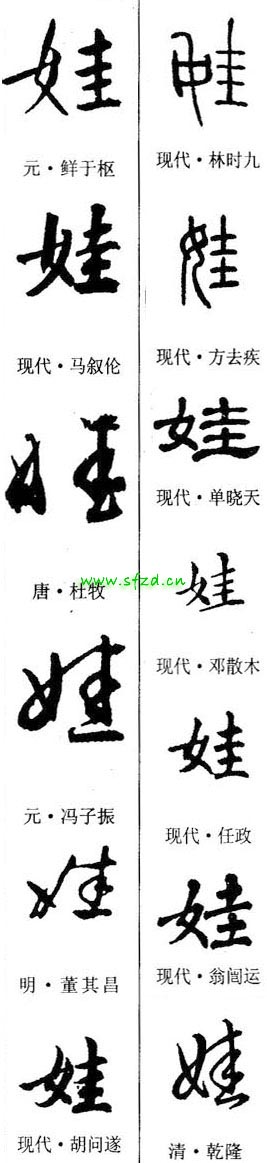 娃
元·鲜于枢
娃
现代·马叙伦
娃
唐·杜牧
娃
元·冯子振
娃
明·董其昌
娃
现代·胡问遂
娃
现代·林时九
娃
现代·方去疾
娃
现代·单晓天
娃
现代·邓散木
娃
现代·任政
娃
现代·翁闿运
娃
清·乾隆
www.sfzd.cn